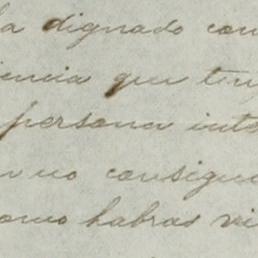 ha dignado con
iencia que ten
persona inte
no consigu
como habras vi